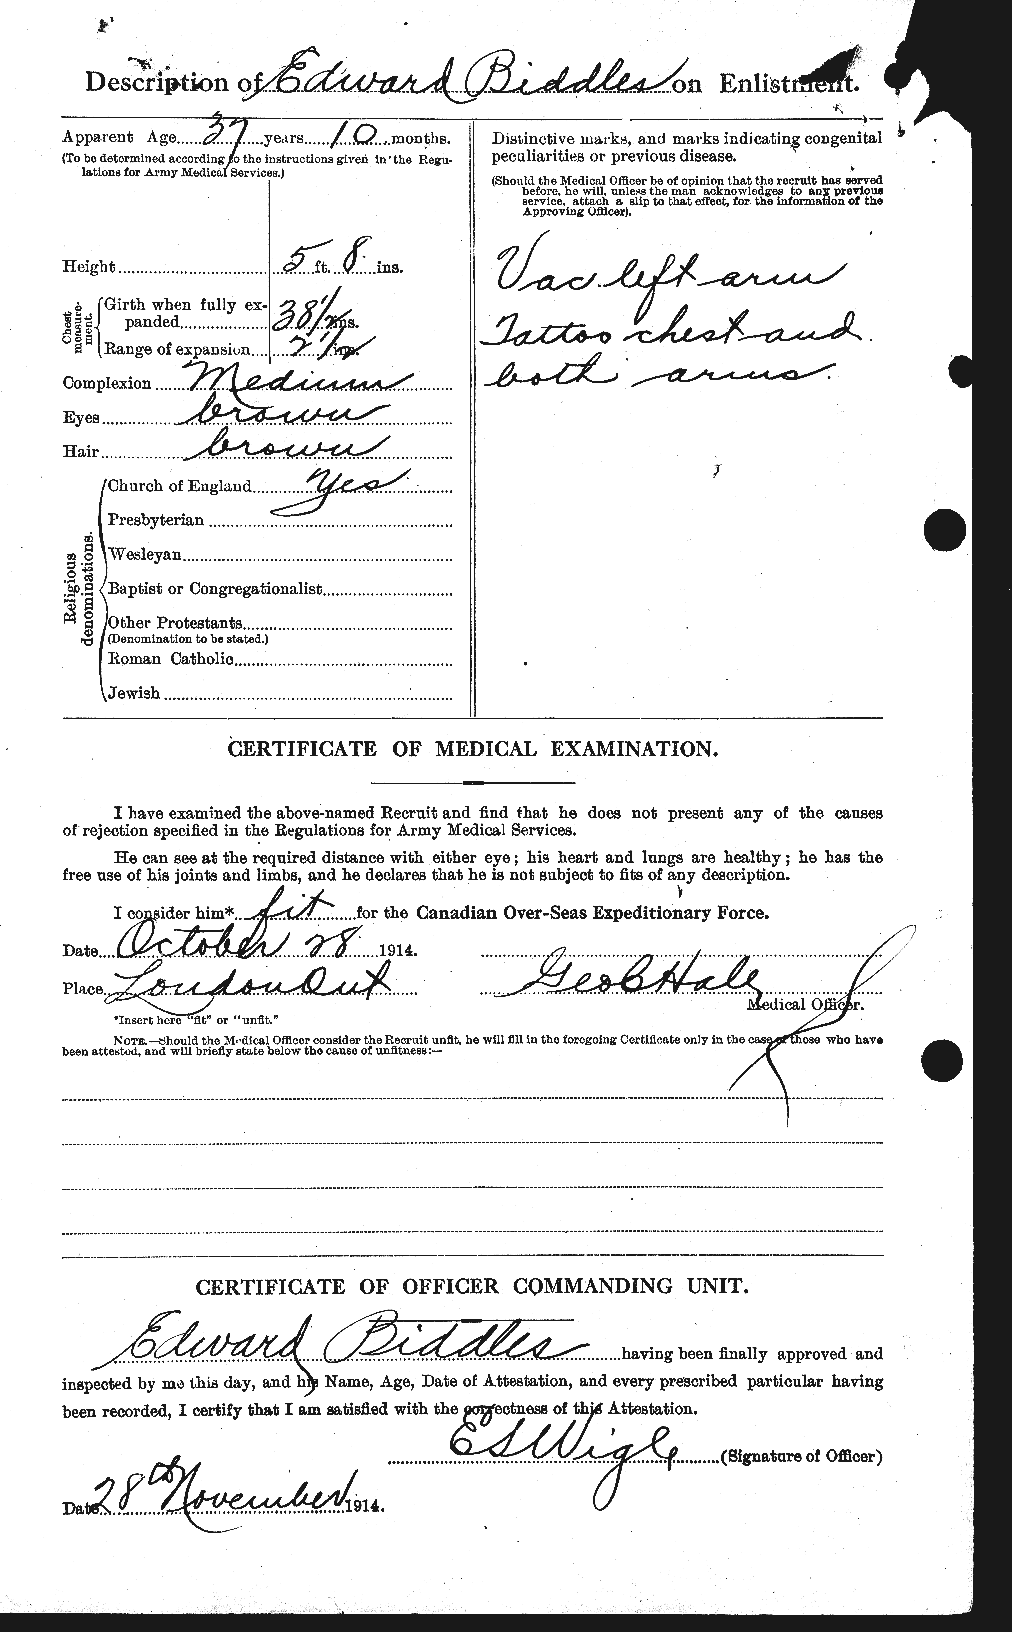 Description of Edward Biddles on Enlistment.
Apparent Age 37 years 10 months.
(To be determined according to the instructions given in the Regu-
lations for Army Medical Services.)
Height 5 ft. 8 ins.
Chest measure-ment.
Girth when fully ex-
panded 38 1/2 ins.
Range of expansion 2 1/2 ins.
Complexion Medium
Eyes brown
Hair brown
Religious denominations.
Church of England Yes
Presbyterian
Wesleyan
Baptist or Congregationalist
Other Protestants
(Denomination to be stated.)
Roman Catholic
Jewish
Distinctive marks, and marks indicating congenital
peculiarities or previous disease.
(Should the Medical Officer be of opinion that the recruit has served
before, he will, unless the man acknowledges to any previous
service, attach a slip to that effect, for the information of the
Approving Officer).
Vac left arm
Tattoo chest and
both arms.
CERTIFICATE OF MEDICAL EXAMINATION.
I have examined the above-named Recruit and find that he does not present any of the causes
of rejection specified in the Regulations for Army Medical Services.
He can see at the required distance with either eye; his heart and lungs are healthy; he has the
free use of his joints and limbs, and he declares that he is not subject to fits of any description.
I consider him* fit for the Canadian Over-Seas Expeditionary Force.
Date October 28 1914.
Place London Ont Geo C Hale
Medical Officer.
*Insert here "fit" or "unfit."
NOTE.—Should the Medical Officer consider the Recruit unfit, he will fill in the foregoing Certificate only in the case of those who have
been attested, and will briefly state below the cause of unfitness:—
CERTIFICATE OF OFFICER COMMANDING UNIT.
Edward Biddles having been finally approved and
inspected by me this day, and his Name, Age, Date of Attestation, and every prescribed particular having
been recorded, I certify that I am satisfied with the correctness of this Attestation.
E S Wigle (Signature of Officer)
Date 28th November 1914.